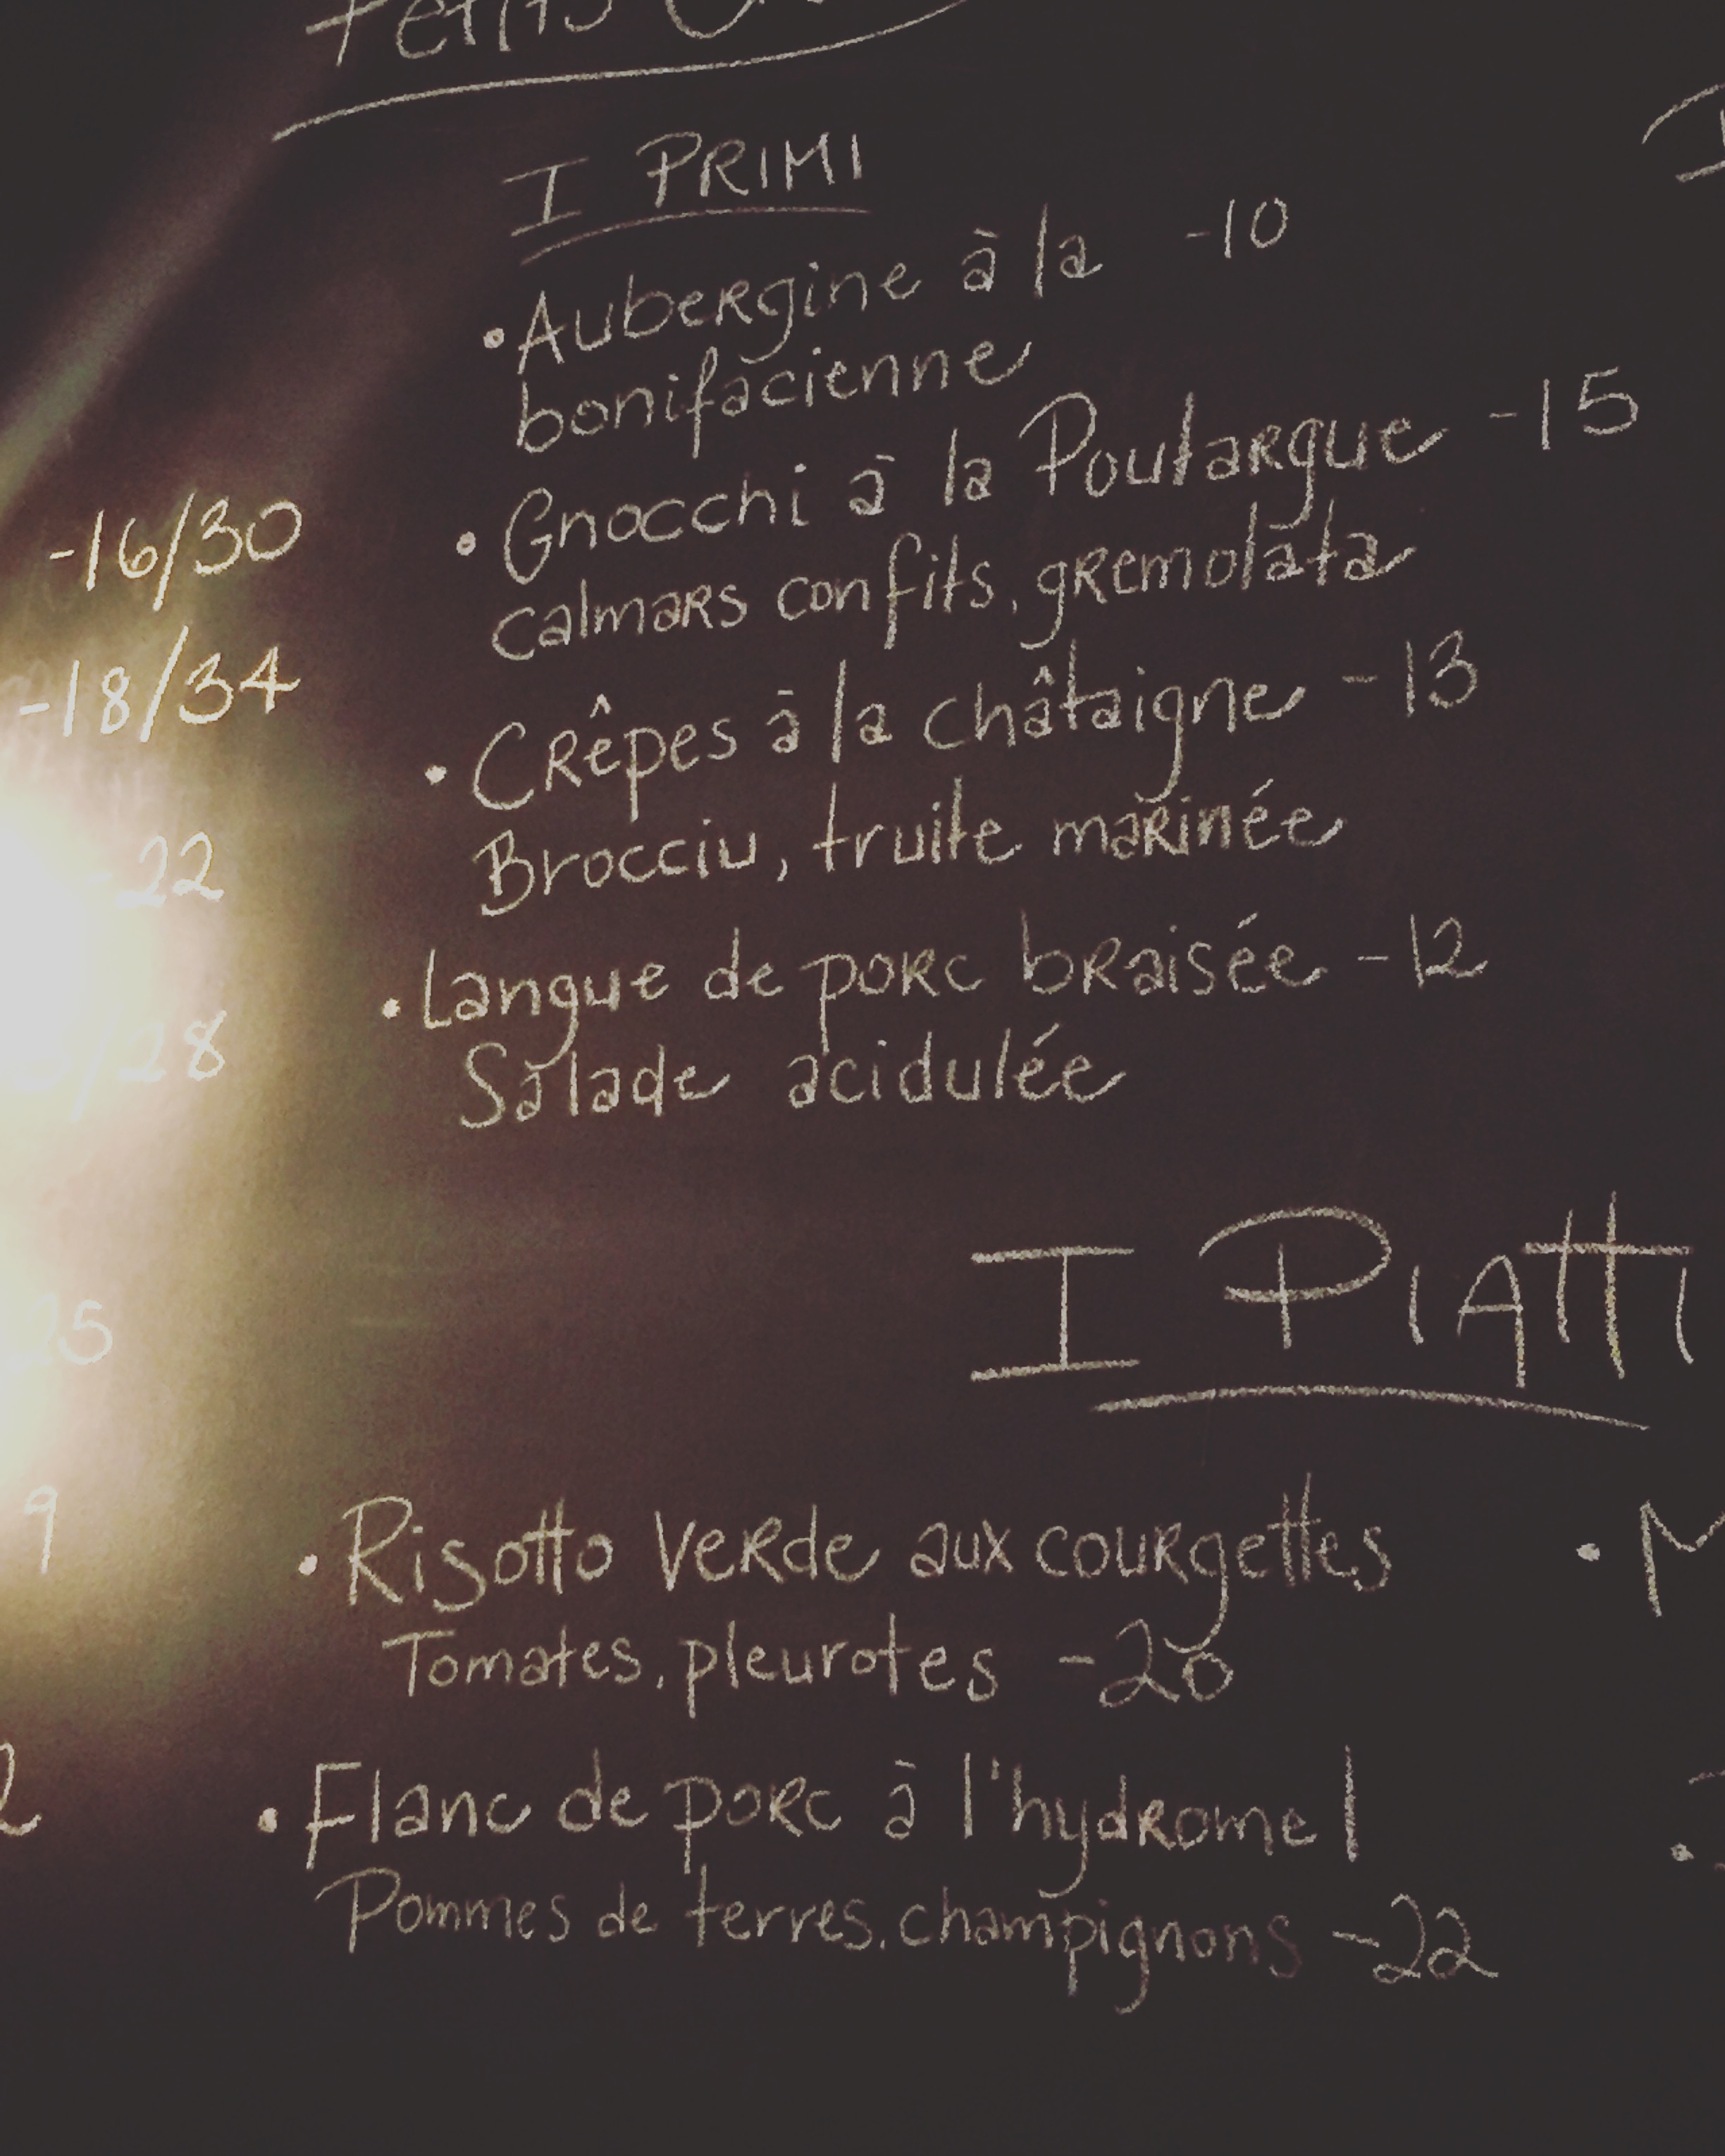 I PRIMI
• Aubergine à la -10
bonifacienne
• Gnocchi à la Poutargue -15
calmars confits, gremolata
• Crêpes à la châtaigne -13
Brocciu, truite marinée
• Langue de porc braisée -12
Salade acidulée
-16/30
-18/34
-22
/28
25
9
2
I Piatti
• Risotto verde aux courgettes
Tomates, pleurotes -20
• Flanc de porc à l'hydromel
Pommes de terres, champignons -22
• M